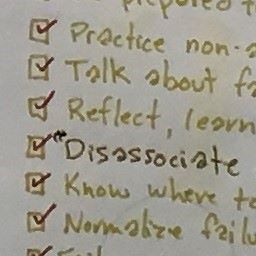 prepared t
Practice non-a
Talk about fa
Reflect, learn
"Disassociate
Know where to
Normalize failu